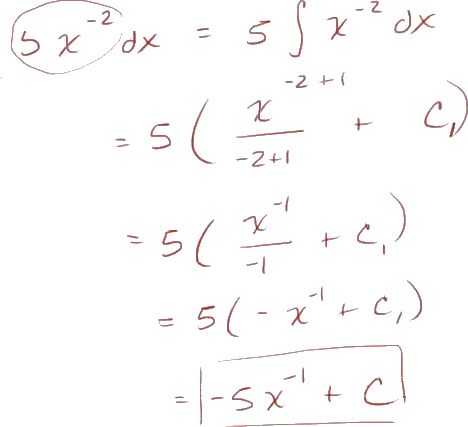 5 x⁻² dx = 5 ∫ x⁻² dx
= 5 ( x⁻²⁺¹ / -2+1 + C₁)
= 5 ( x⁻¹ / -1 + C₁)
= 5 ( - x⁻¹ + C₁)
= -5x⁻¹ + C